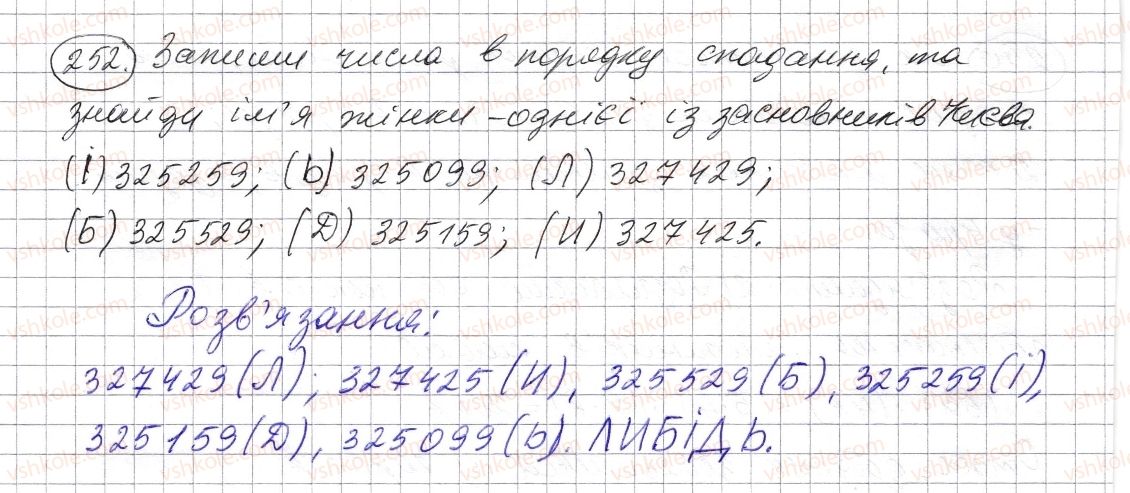 252. Запиши числа в порядку спадання, та
знайди ім'я жінки - однієї із засновників Києва.
(і) 325259; (ь) 325099; (Л) 327429;
(Б) 325529; (Д) 325159; (И) 327425.
Розв'язання:
327429 (Л); 327425 (И), 325529 (Б), 325259 (і),
325159 (Д), 325099 (ь). ЛИБІДЬ.